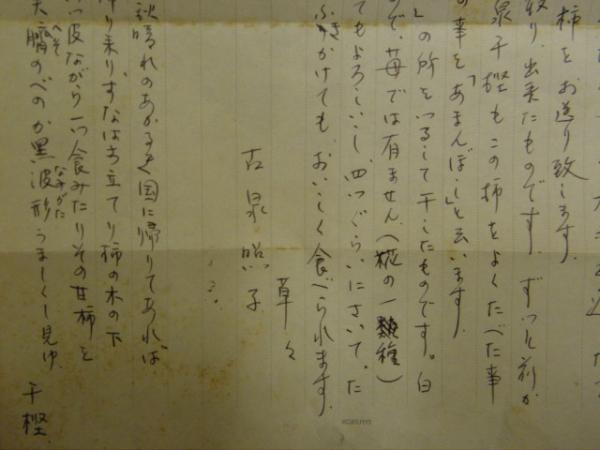 柿をお送り致します。
取り、出来たものです。ずっと前が
泉千樫もこの柿をよくたべた事
の事を「あまんぼし」と云います。
」の所をつるして干したものです。白
ので、苺では有ません。(糀の一種)
てもよろしいし、四つぐらいにさいて、た
ふきかけても、おいしく食べられます。
草々
古泉照子
秋晴れのあかるき国に帰りてあれば
降り乗りすなはち立てり柿の木の下
つ皮ながら一つ食みたりその甘柿を
臍のべのか黒波形うましくし見ゆ 千樫
KOKUYO